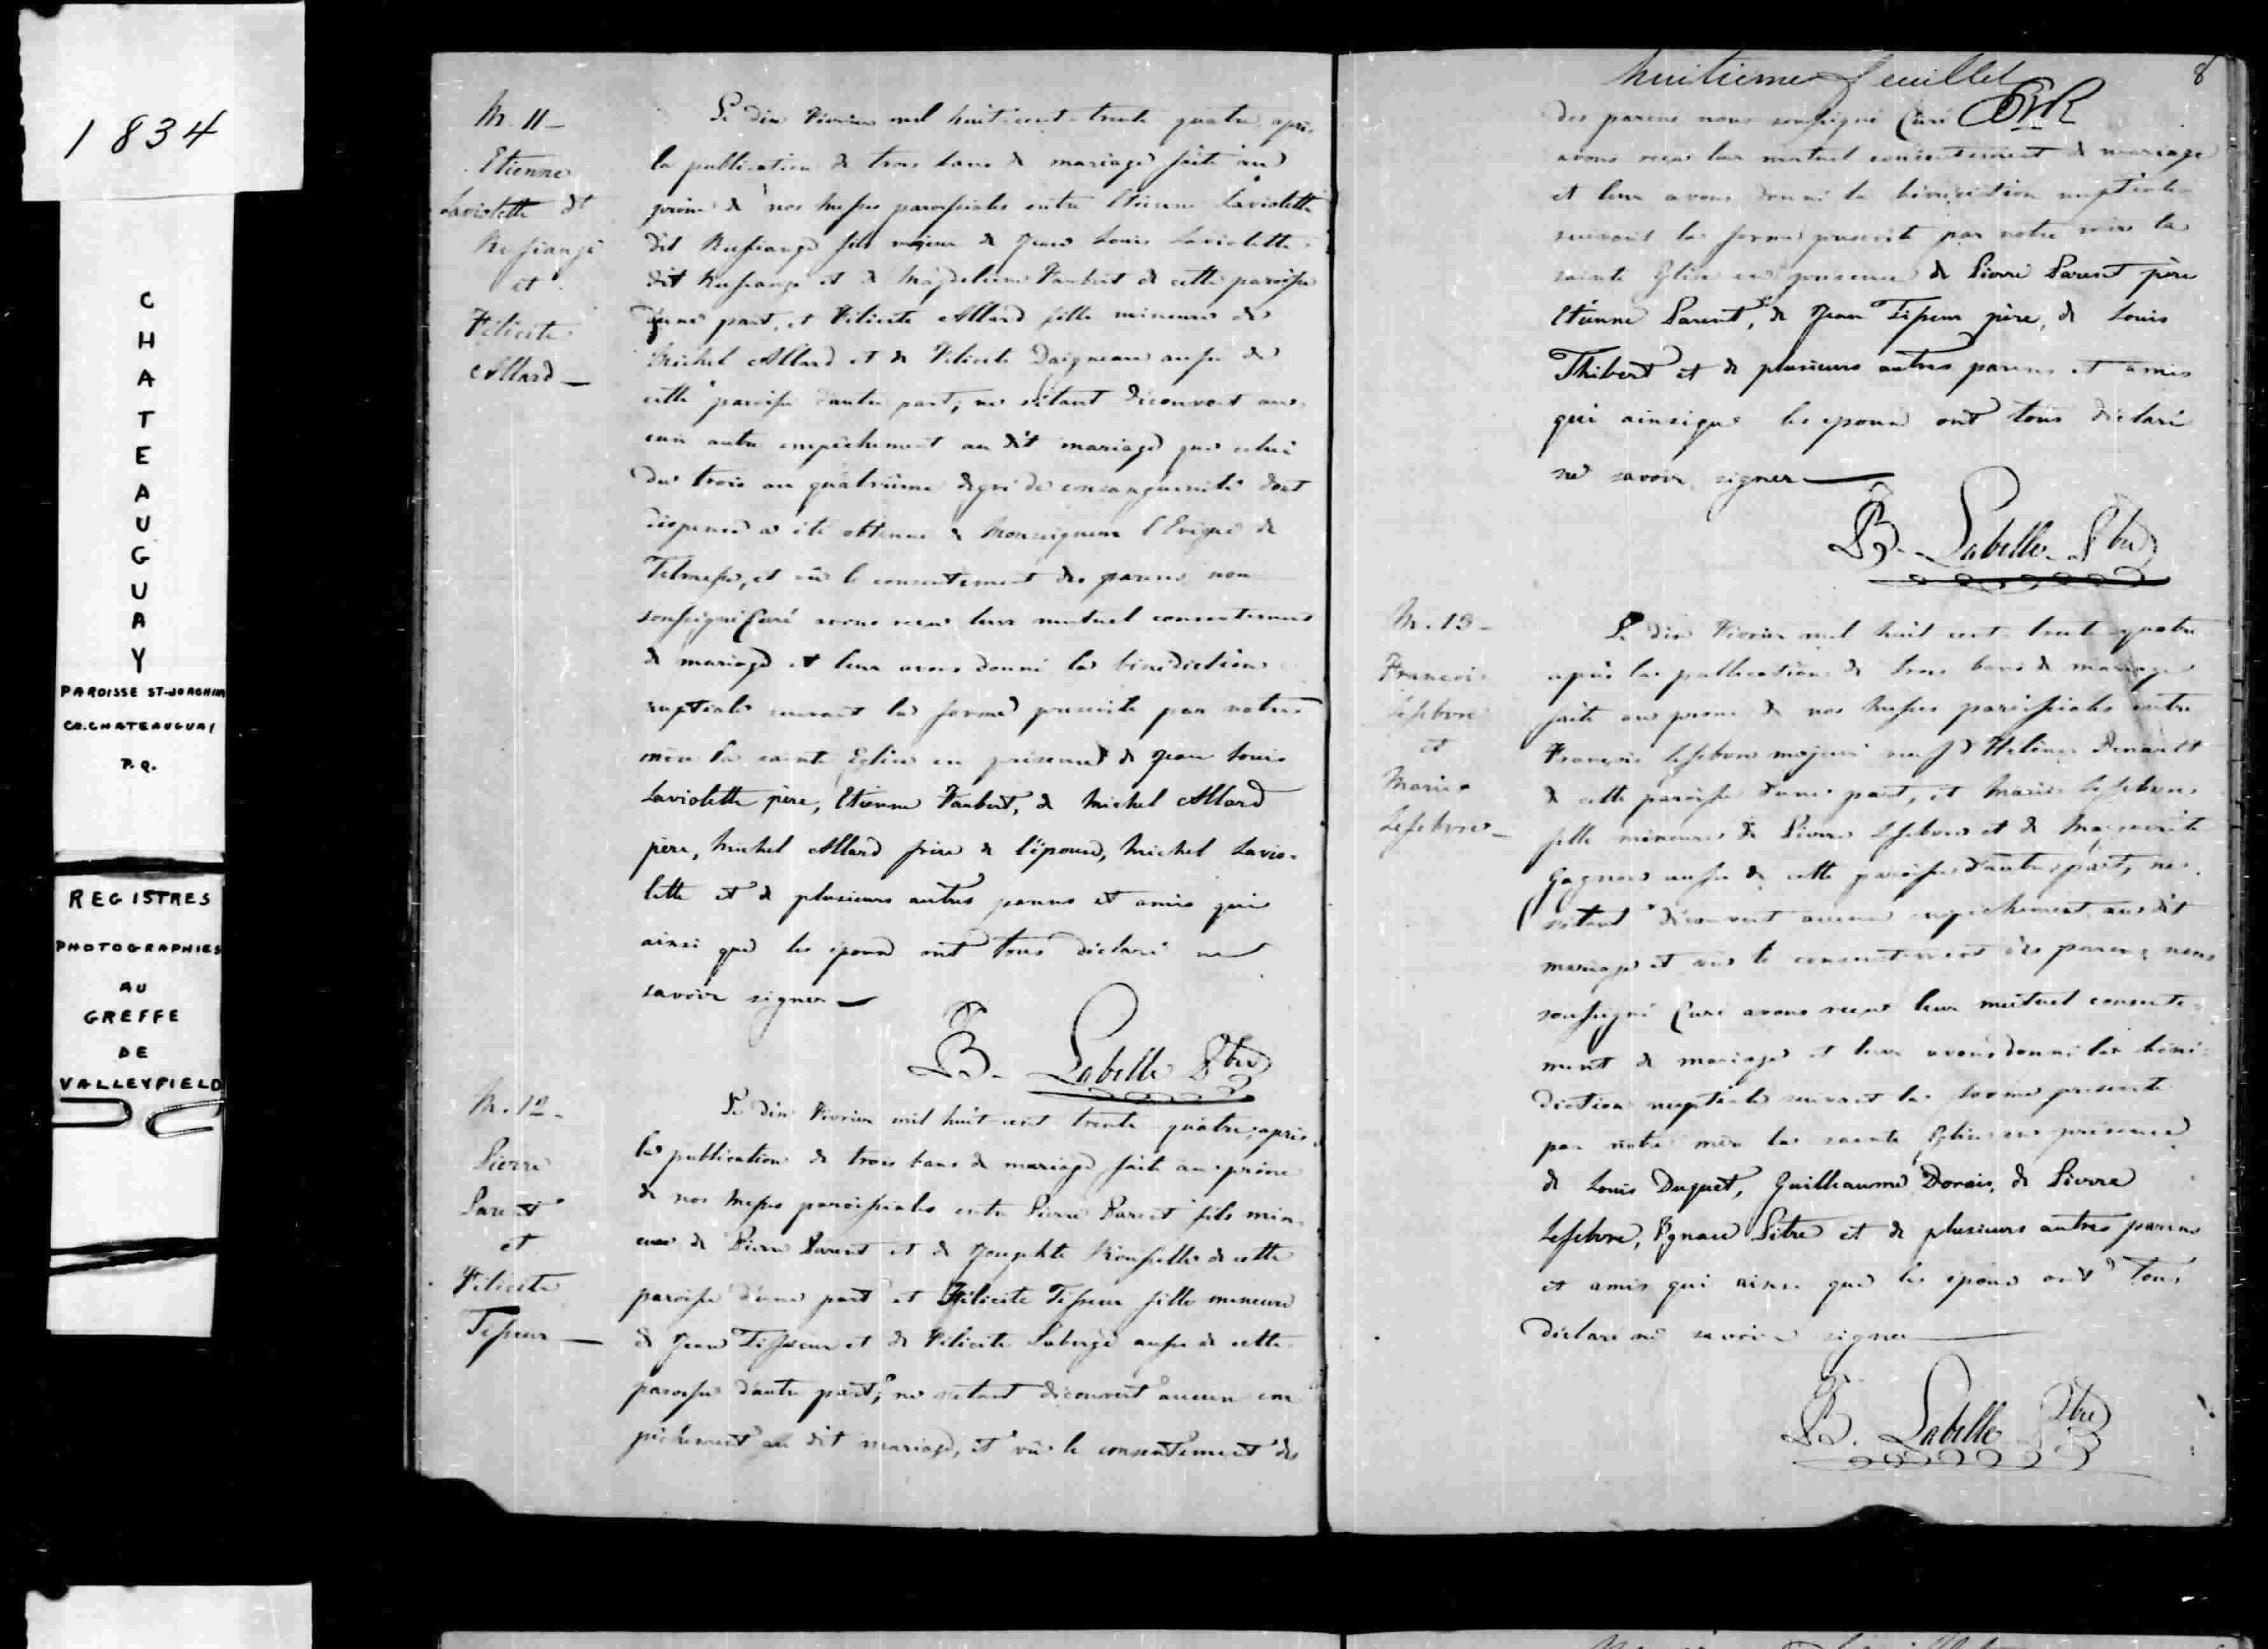 1834
CHATEAUGUAY
PAROISSE ST-JOACHIM
CO. CHATEAUGUAY
P.Q.
REGISTRES
PHOTOGRAPHIES
AU
GREFFE
DE
VALLEYFIELD
M. 11 —
Etienne
Laviolette dt
et
Félicité
Allard —
Le dix Février mil huit-cent-trente quatre, après
la publication de trois bans de mariage faite au
prône de nos Messes paroissiales entre Etienne Laviolette
dit fils majeur de Jean Louis Laviolette
dit et de Magdeleine Faubert de cette paroisse
d'une part, et Félicité Allard fille mineure de
Michel Allard et de Félicité Daigneau aussi de
cette paroisse d'autre part; ne s'étant découvert au-
cun autre empêchement au dit mariage que celui
du trois au quatrième degré de consanguinité dont
dispense a été obtenue de Monseigneur l'Evêque de
Telmesse, et vû le consentement des parens nous
soussigné Curé avons reçu leur mutuel consentement
de mariage et leur avons donné la bénédiction
nuptiale suivant la forme prescrite par notre
mère la sainte Eglise en présence de Jean Louis
Laviolette père, Etienne Faubert, de Michel Allard
père, Michel Allard frère de l'épouse, Michel Lavio-
lette et de plusieurs autres parens et amis qui
ainsi que les époux ont tous déclaré ne
savoir signer —
B. Labelle Ptre
M. 12 -
Pierre
Parent
et
Félicité
Tesseur —
Le dix Février mil huit-cent trente-quatre, après
la publication de trois bans de mariage faite au prône
de nos Messes paroissiales entre Pierre Parent fils min-
eur de Pierre Parent et de de cette
paroisse d'une part et Félicité Tesseur fille mineure
de Jean Tesseur et de Félicité Laberge aussi de cette
paroisse d'autre part; ne s'étant découvert aucun em
pêchement au dit mariage, et vû le consentement des
huitieme feuillet
8
des parens nous soussigné Curé
avons reçu leur mutuel consentement de mariage
et leur avons donné la bénédiction nuptiale
suivant la forme prescrite par notre mère la
sainte Eglise en présence de Pierre Parent père
Etienne Parent, de Jean Tesseur père, de Louis
Thibert et de plusieurs autres parens et amis
qui ainsique les époux ont tous déclaré
ne savoir signer —
B. Labelle Ptre
M. 13 -
François
Lefebvre
et
Marie
Lefebvre -
Le dix Février mil huit-cent-trente-quatre
après la publication de trois bans de mariage
faite au prone de nos Messes paroissiales entre
François Lefebvre majeur veuf d'Hélène
de cette paroisse d'une part, et Marie Lefebvre
fille mineure de Pierre Lefebvre et de Marguerite
aussi de cette paroisse d'autre part, ne
s'étant découvert aucun empêchement au dit
mariage et vû le consentement des parens nous
soussigné Curé avons reçu leur mutuel consente-
ment de mariage et leur avons donné la béné-
diction nuptiale suivant la forme prescrite
par notre mère la sainte Eglise en présence
de Louis Duquet, Guilleaume Dorais, de Pierre
Lefebvre, Ignace Pitre et de plusieurs autres parens
et amis qui ainsi que les époux ont tous
déclaré ne savoir signer —
B. Labelle Ptre